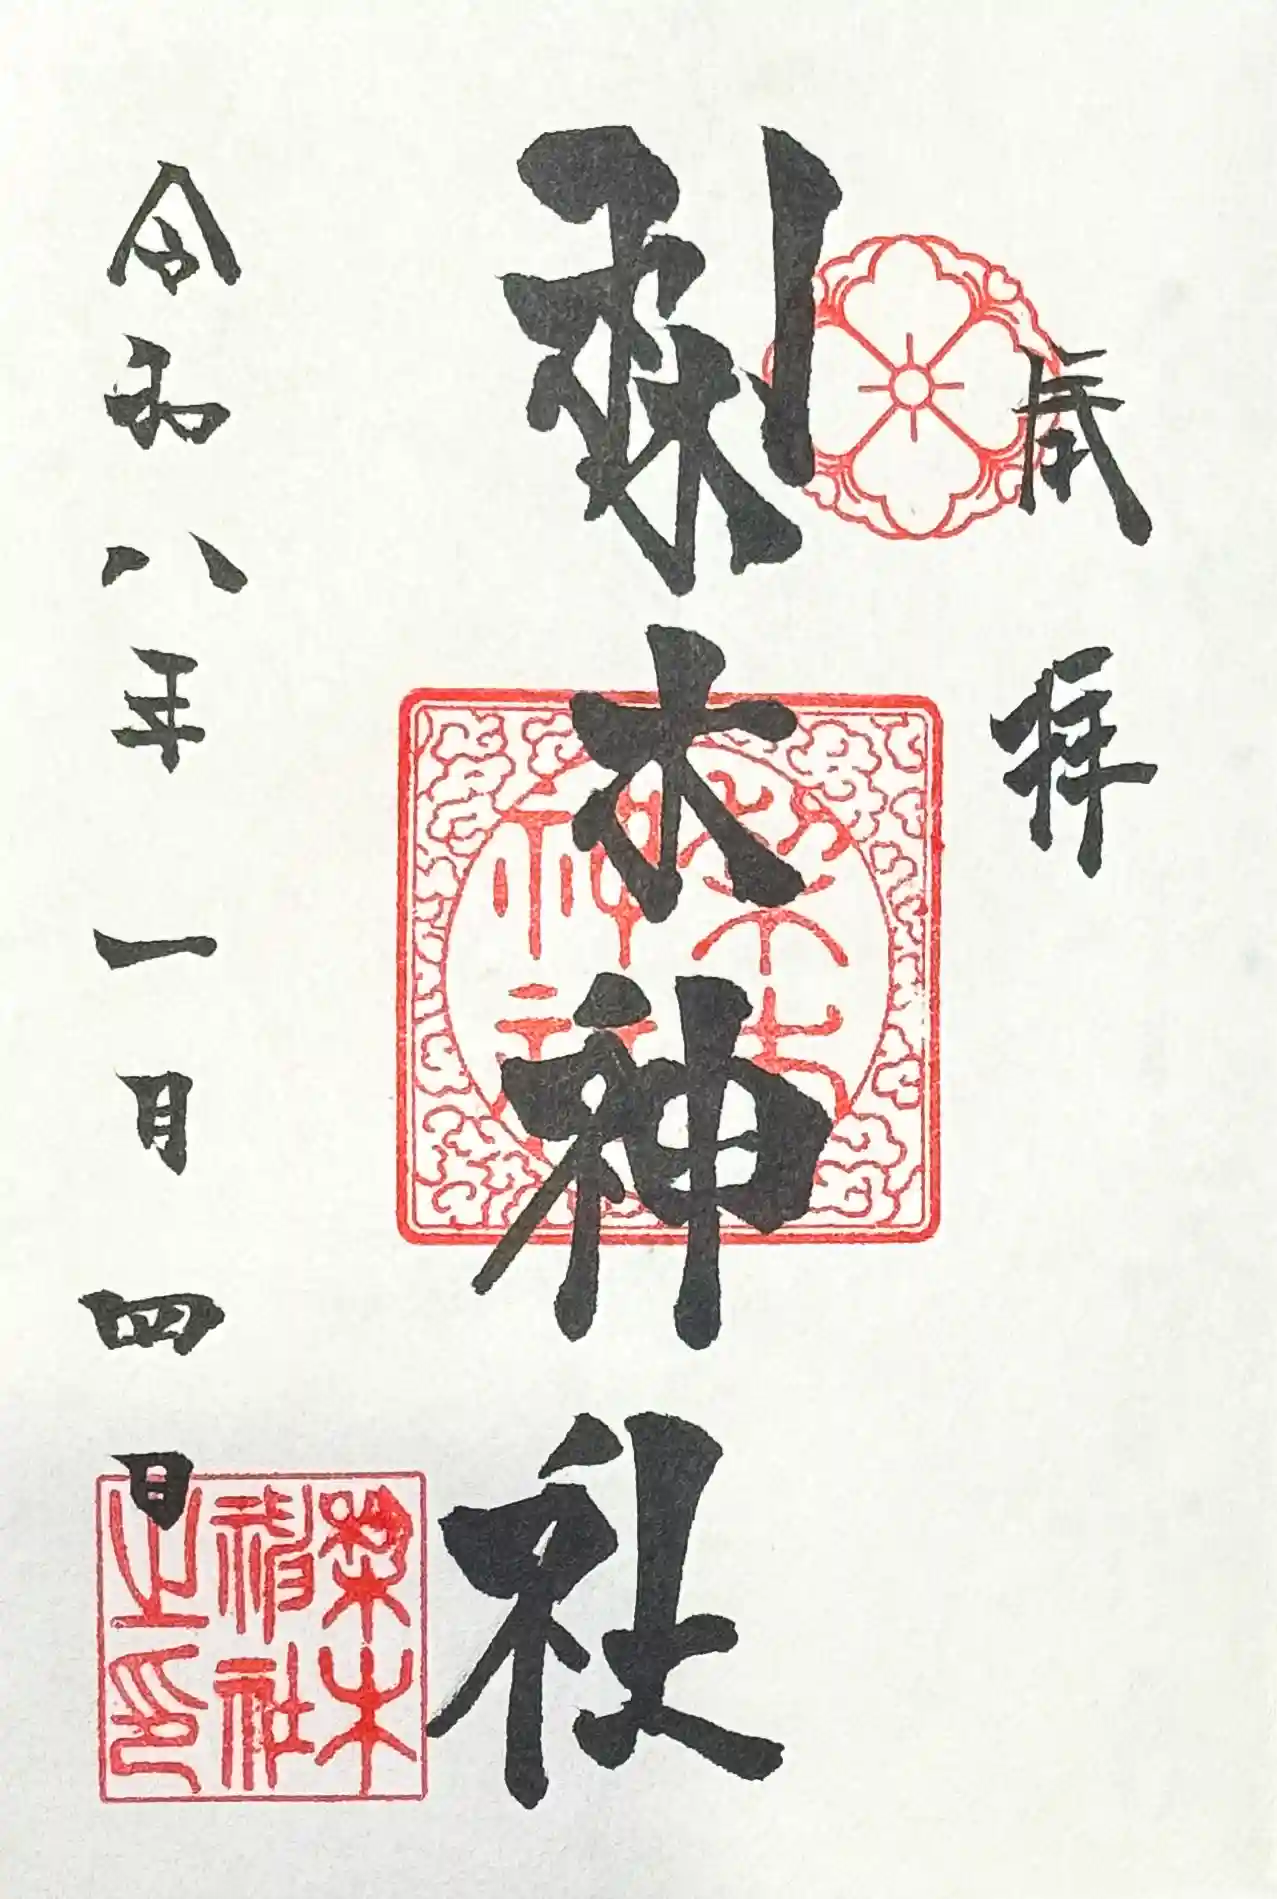 奉拝
梨木神社
令和八年一月四日
梨木
神社
之印